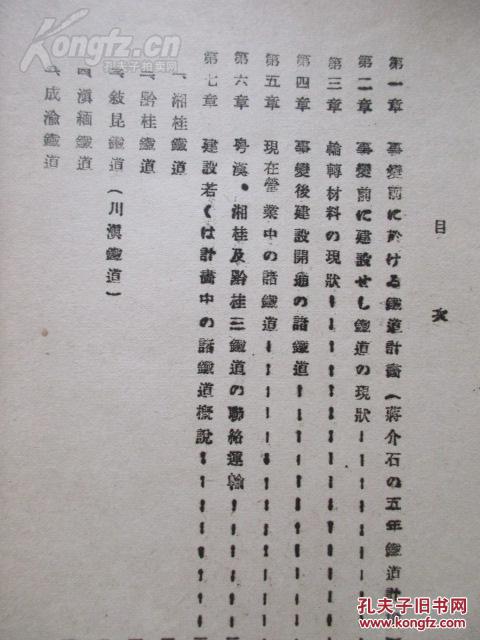 目次
第一章 事變前に於ける鐵道計畫(蔣介石の五年鐵道計
第二章 事變前に建設せし鐵道の現狀
第三章 輪轉材料の現狀
第四章 事變後建設開通の諸鐵道
第五章 現在營業中の諸鐵道
第六章 粤漢・湘桂及黔桂三鐵道の聯絡運輸
第七章 建設若くは計畫中の諸鐵道概說
一、湘桂鐵道
二、黔桂鐵道
三、敍昆鐵道(川滇鐵道)
四、滇緬鐵道
五、成渝鐵道
孔夫子旧书网
Kongfz.com
孔夫子旧书网
www.kongfz.com